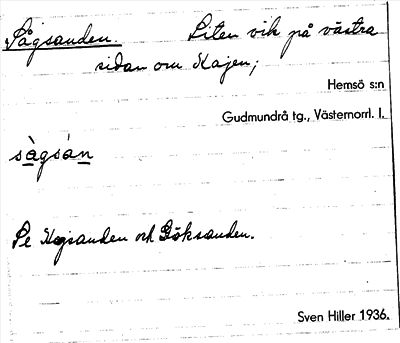 Sågsanden. Liten vik på västra
sidan om Kajen;
Hemsö s:n
Gudmundrå tg., Västernorrl. l.
sàgsán
Se Kogsanden och Göksanden.
Sven Hiller 1936.